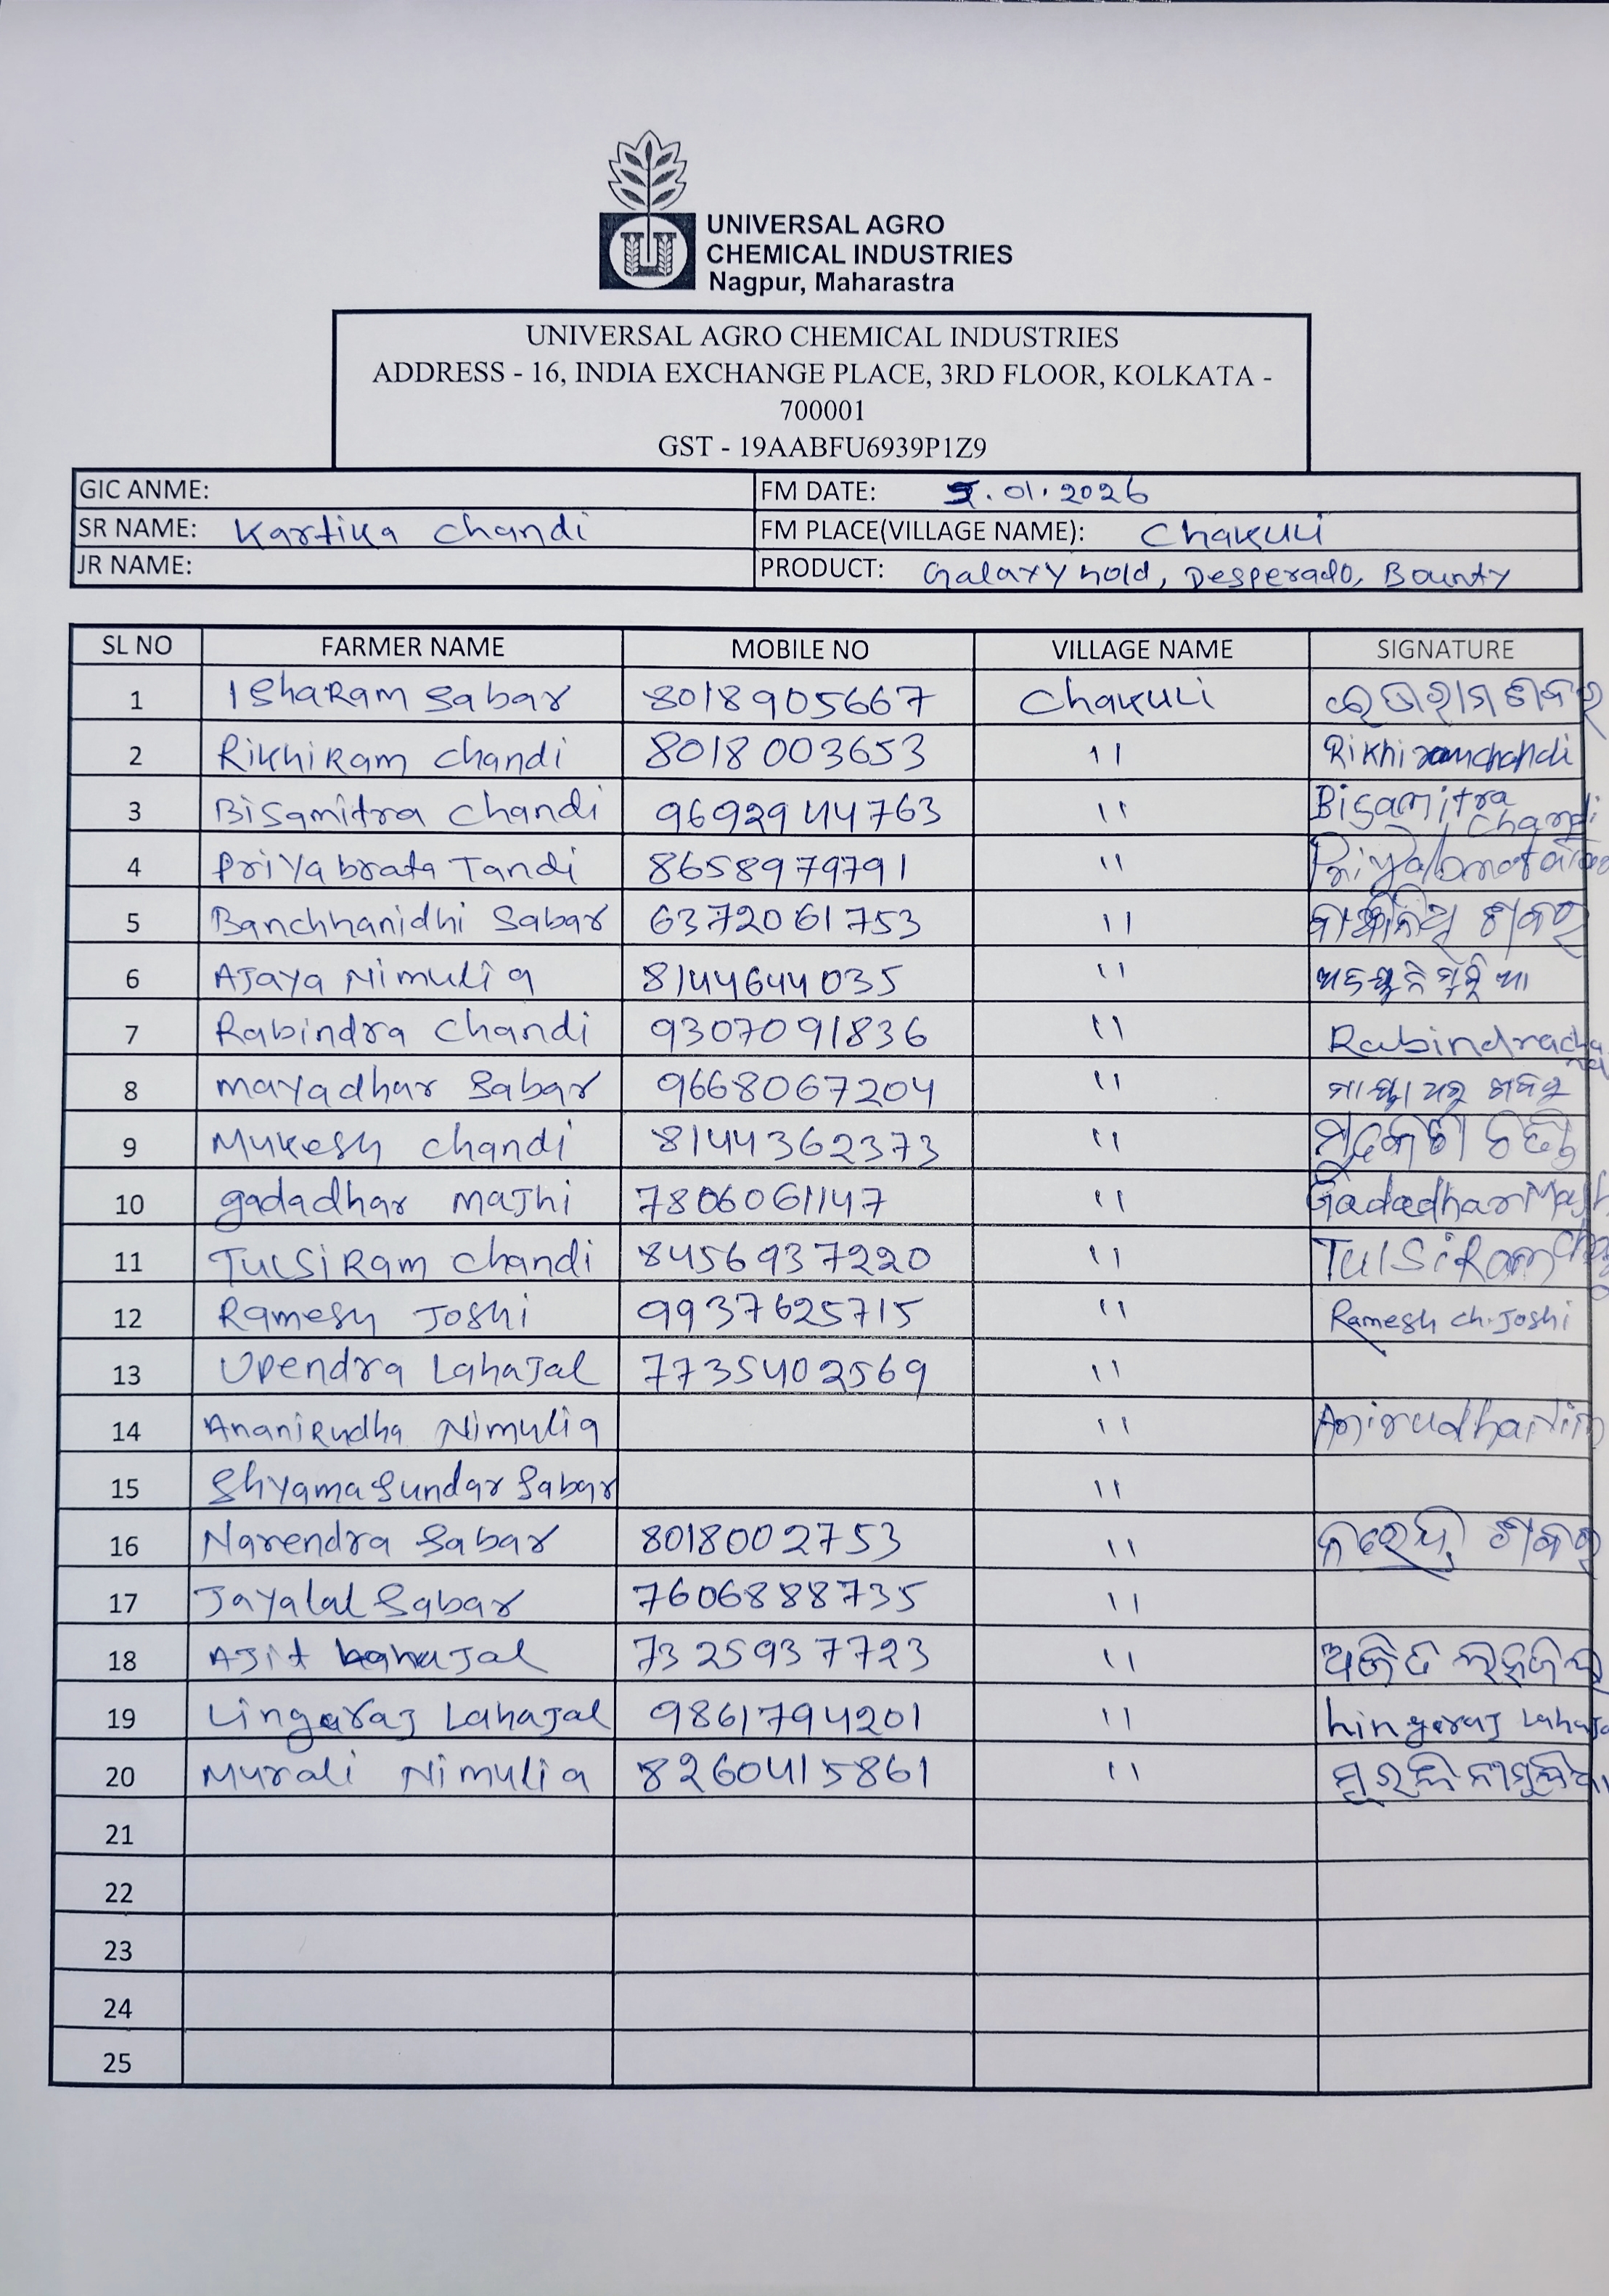 UNIVERSAL AGRO
CHEMICAL INDUSTRIES
Nagpur, Maharastra
UNIVERSAL AGRO CHEMICAL INDUSTRIES
ADDRESS - 16, INDIA EXCHANGE PLACE, 3RD FLOOR, KOLKATA -
700001
GST - 19AABFU6939P1Z9
GIC ANME: FM DATE: .01.2026
SR NAME: Kartika Chandi FM PLACE(VILLAGE NAME): Chakuli
JR NAME: PRODUCT: Galaxy Desperado, Bounty
SL NO FARMER NAME MOBILE NO VILLAGE NAME SIGNATURE
1 IShaRam Sabar 8018905667 Chakuli
2 RikhiRam Chandi 8018003653 " Rikhiramchandi
3 Bisamitra Chandi 9692944763 " Bisamitra Chandi
4 Priyabrata Tandi 8658979791 "
5 Banchhanidhi Sabar 6372061753 " ବାଞ୍ଛାନିଧି ଶବର
6 AJaya Nimulia 8144644035 "
7 Rabindra Chandi 9307091836 " Rabindra cha
8 mayadhar Sabar 9668067204 "
9 Mukesh chandi 8144362373 "
10 gadadhar maJhi 7806061147 " Gadadhar Majh
11 TulSiRam Chandi 8456937220 " TulSiRam
12 Ramesh Joshi 9937625715 " Ramesh ch.Joshi
13 Upendra LahaJal 7735402569 "
14 AnaniRudha Nimulia " Anirudha Nim
15 Shyama Sundar Sabar "
16 Narendra Sabar 8018002753 "
17 Jayalal Sabar 7606888735 "
18 AJit LahaJal 7325937723 "
19 Lingaraj LahaJal 9861794201 " Lingaraj Lahaja
20 Murali Nimulia 8260415861 "
21
22
23
24
25